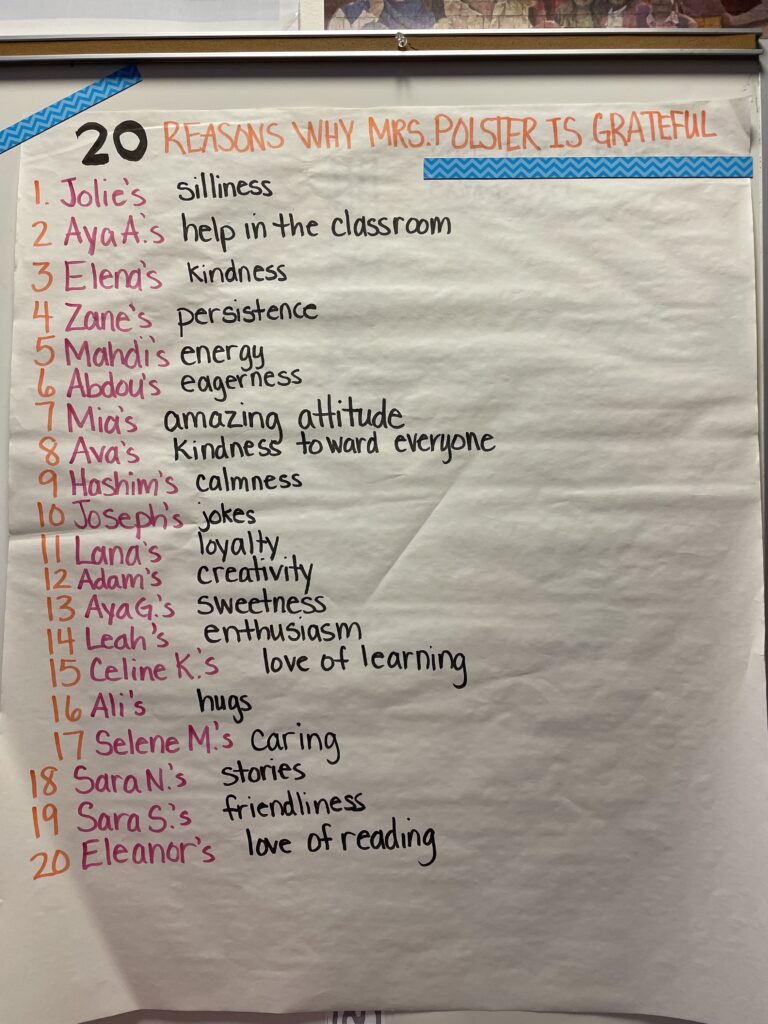 20 REASONS WHY MRS. POLSTER IS GRATEFUL
1. Jolie's silliness
2 Aya A.'s help in the classroom
3 Elena's kindness
4 Zane's persistence
5 Mahdi's energy
6 Abdou's eagerness
7 Mia's amazing attitude
8 Ava's kindness toward everyone
9 Hashim's calmness
10 Joseph's jokes
11 Lana's loyalty
12 Adam's creativity
13 Aya G.'s sweetness
14 Leah's enthusiasm
15 Celine K.'s love of learning
16 Ali's hugs
17 Selene M.'s caring
18 Sara N.'s stories
19 Sara S.'s friendliness
20 Eleanor's love of reading